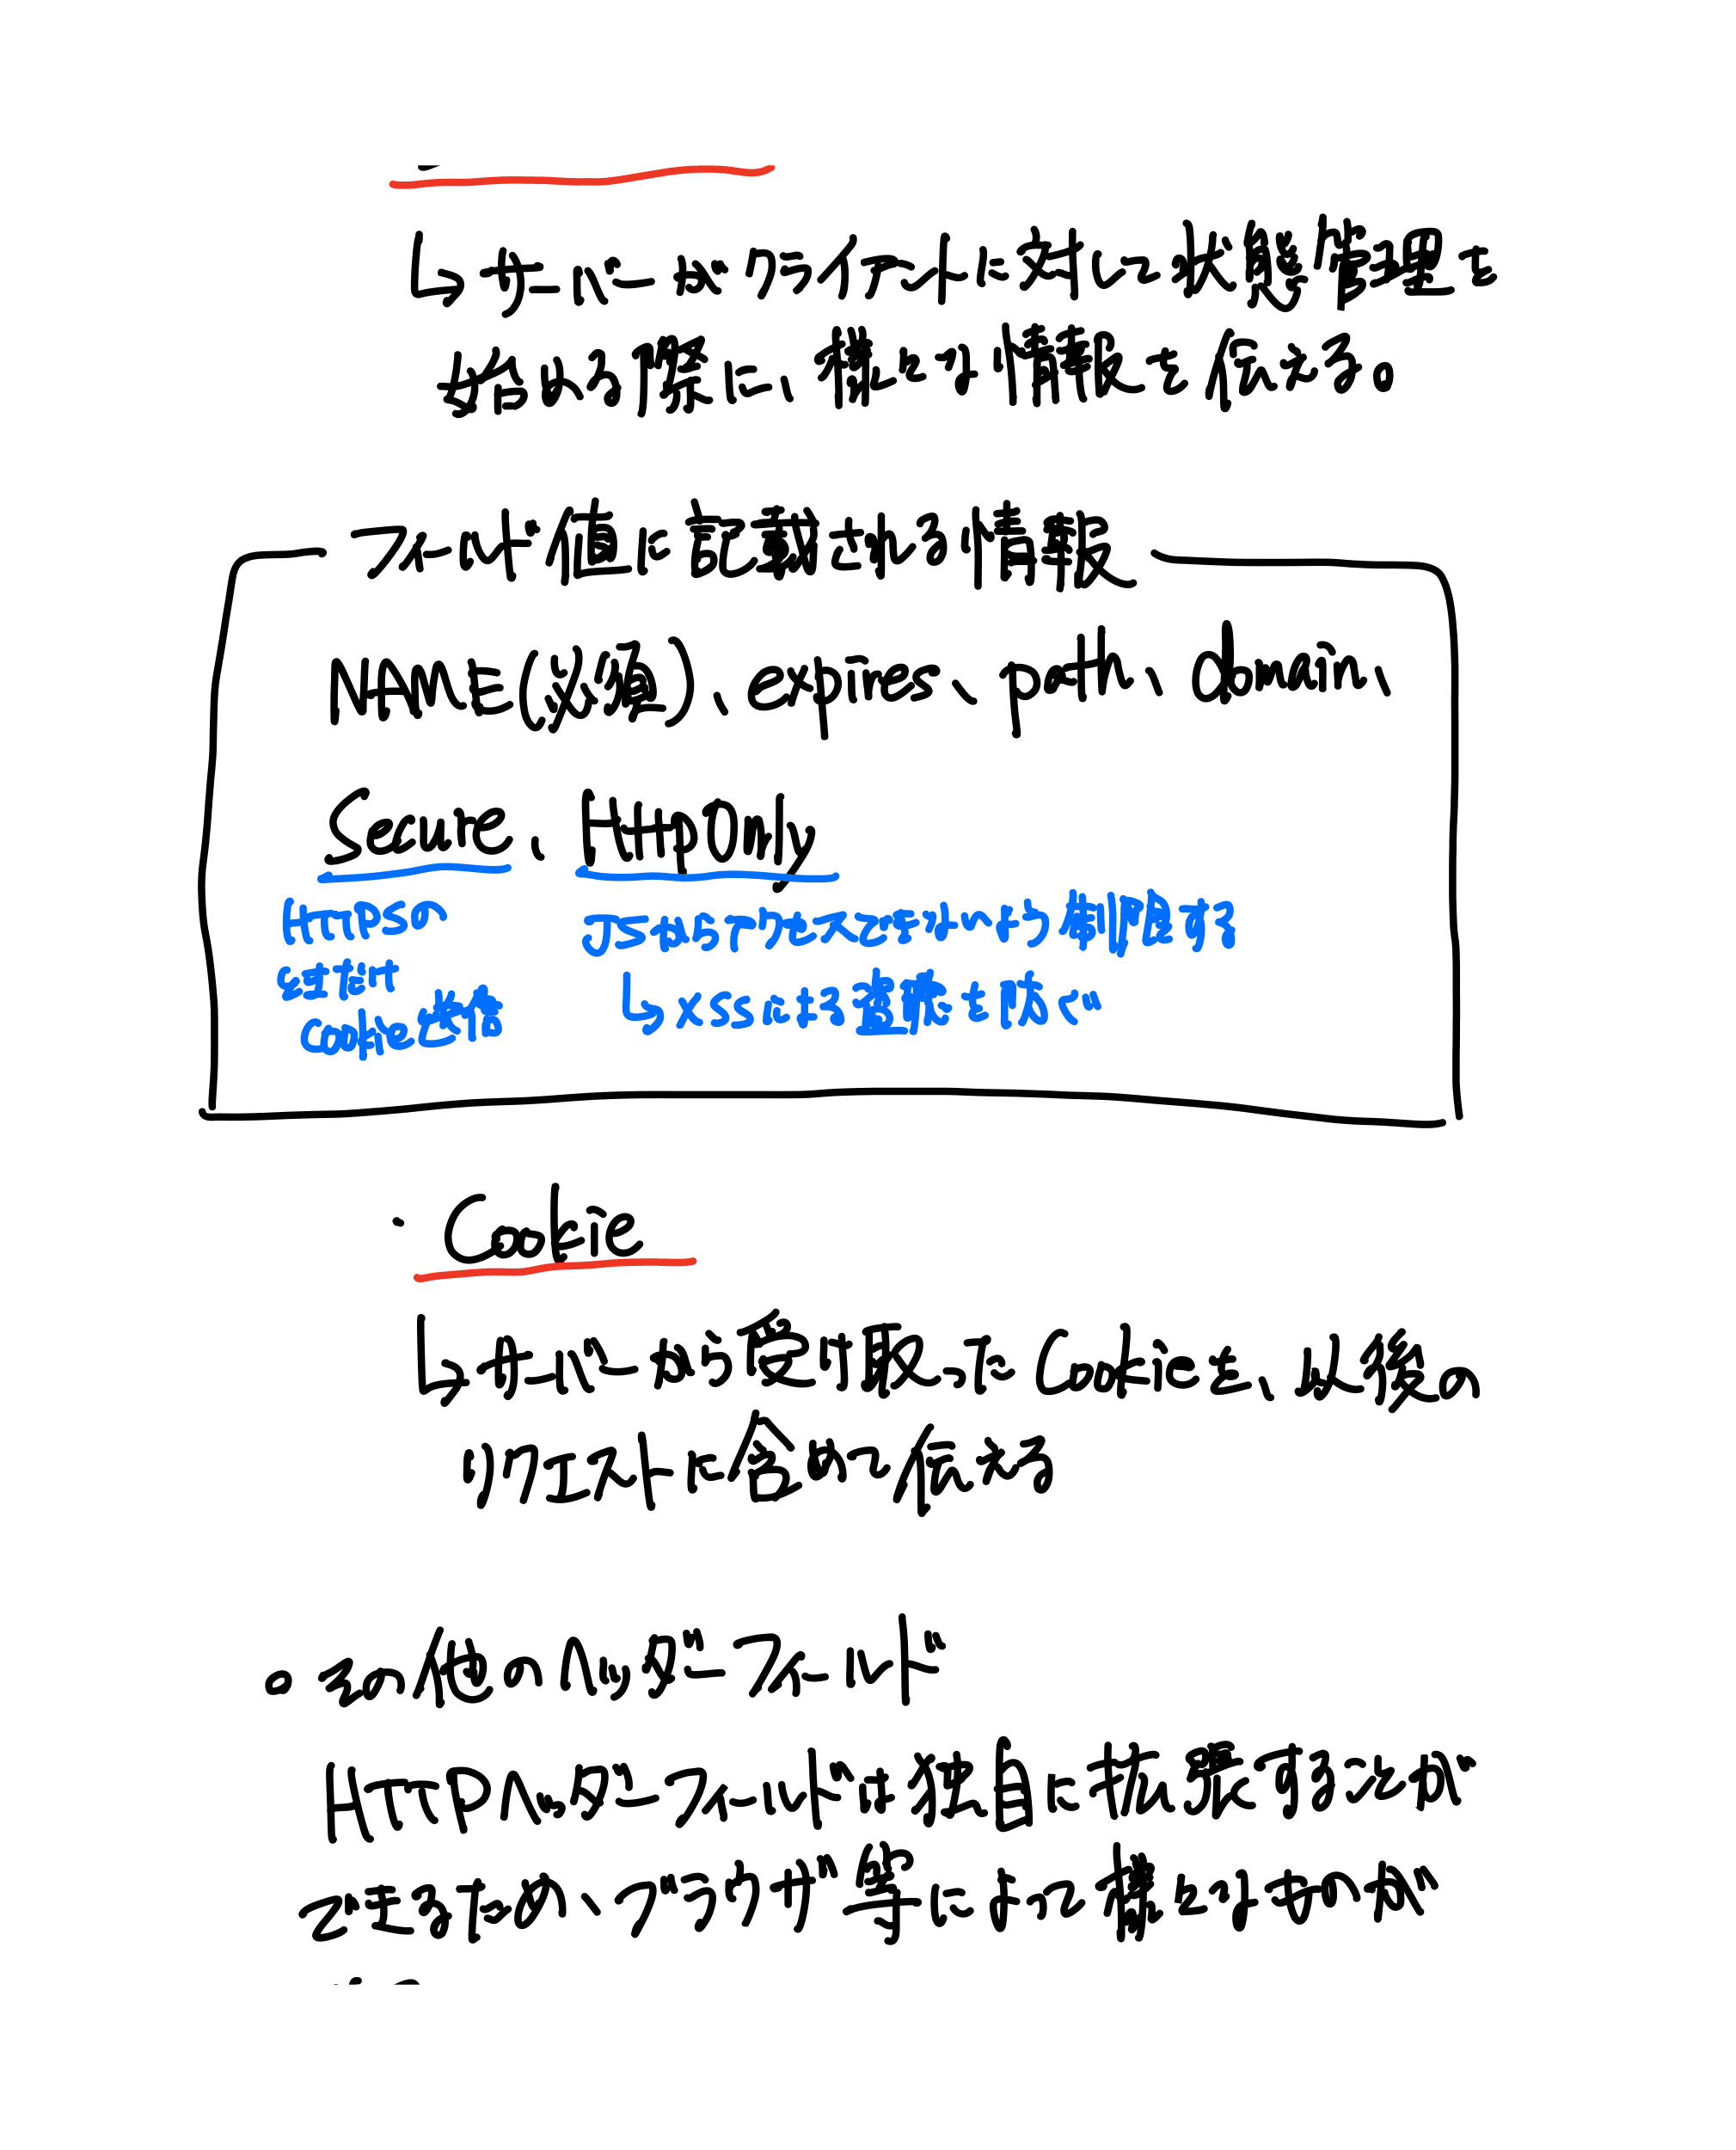 ↳ サーバーがクライアントに対して状態管理を
始める際に、様々な情報を伝える。
フィールド値に記載される情報
NAME(必須)、expires、path、domain、
Secure、HttpOnly
HTTPSの
ときだけ
Cookie送信
JSからアクセスできないよう制限する
↳ XSSによる盗聴を防ぐ
・Cookie
↳ サーバーから受け取ったCookieを、以後の
リクエストに含めて伝える
○ その他のヘッダーフィールド
HTTPヘッダーフィールドは独自に拡張することが
できるため、ブラウザ等によって様々なものが